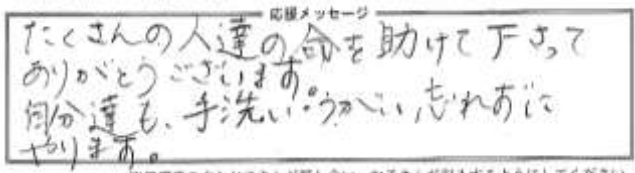 応援メッセージ
たくさんの人達の命を助けて下さって
ありがとうございます。
自分達も、手洗い・うがい、忘れずに
やります。